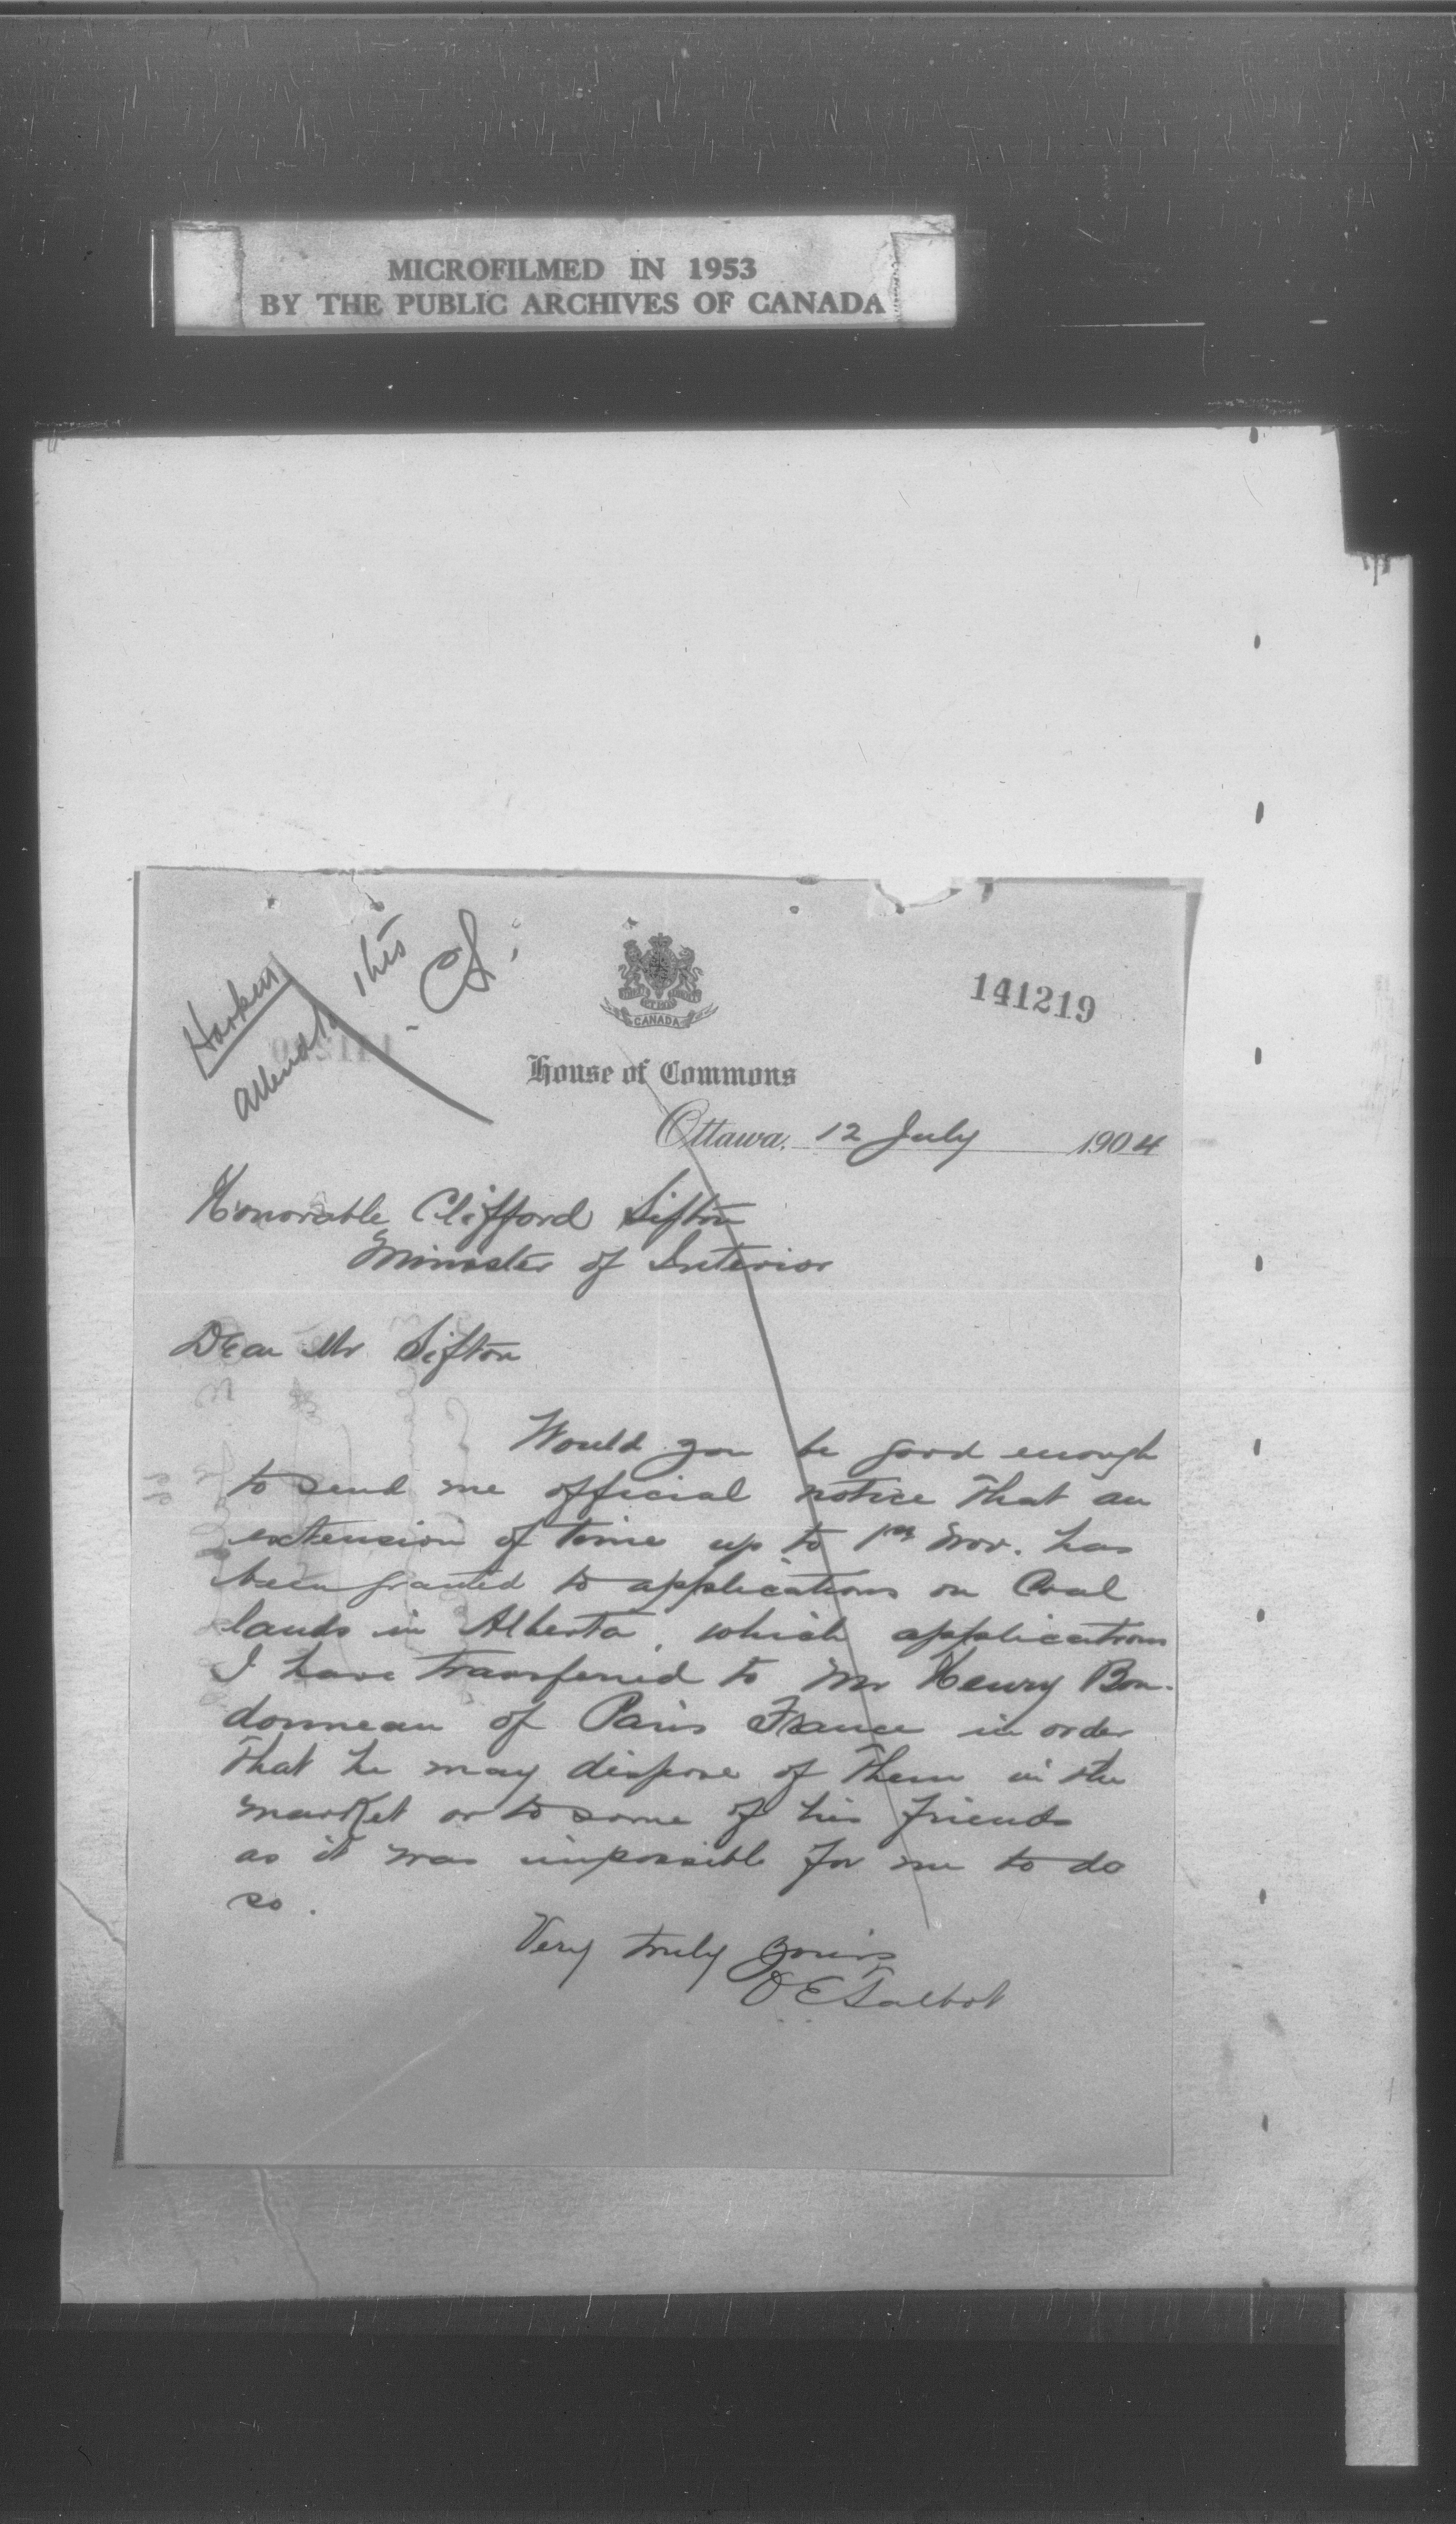 MICROFILMED IN 1953
BY THE PUBLIC ARCHIVES OF CANADA
Harkin
attend to this
C.S.
141219
CANADA
House of Commons
Ottawa, 12 July 1904
Honorable Clifford Sifton
Minister of Interior
Dear Mr Sifton
Would you be good enough
to send me official notice that an
extension of time up to 1st Nov. has
been granted to applications on Coal
lands in Alberta, which applications
I have transferred to Mr Henry Bon-
donneau of Paris France in order
that he may dispose of them in the
market or to some of his friends
as it was impossible for me to do
so.
Very truly yours
O E Talbot